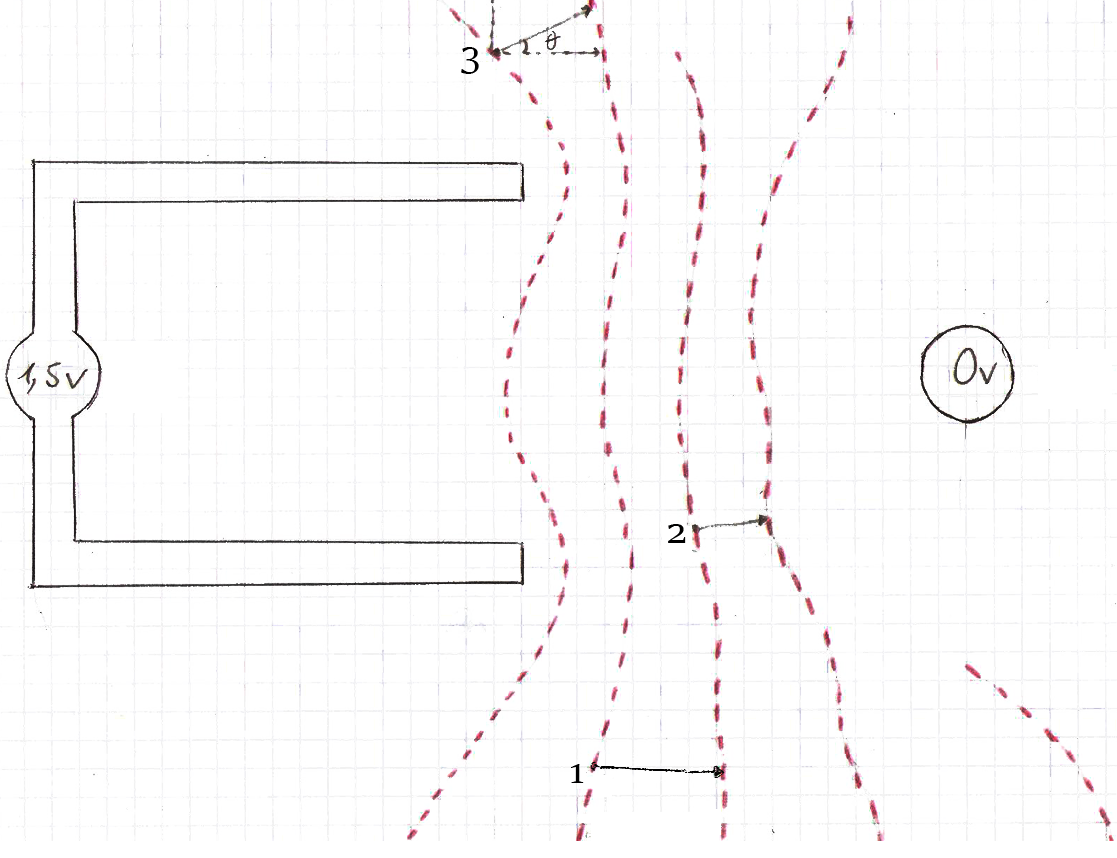 3
θ
1,5v
0v
2
1